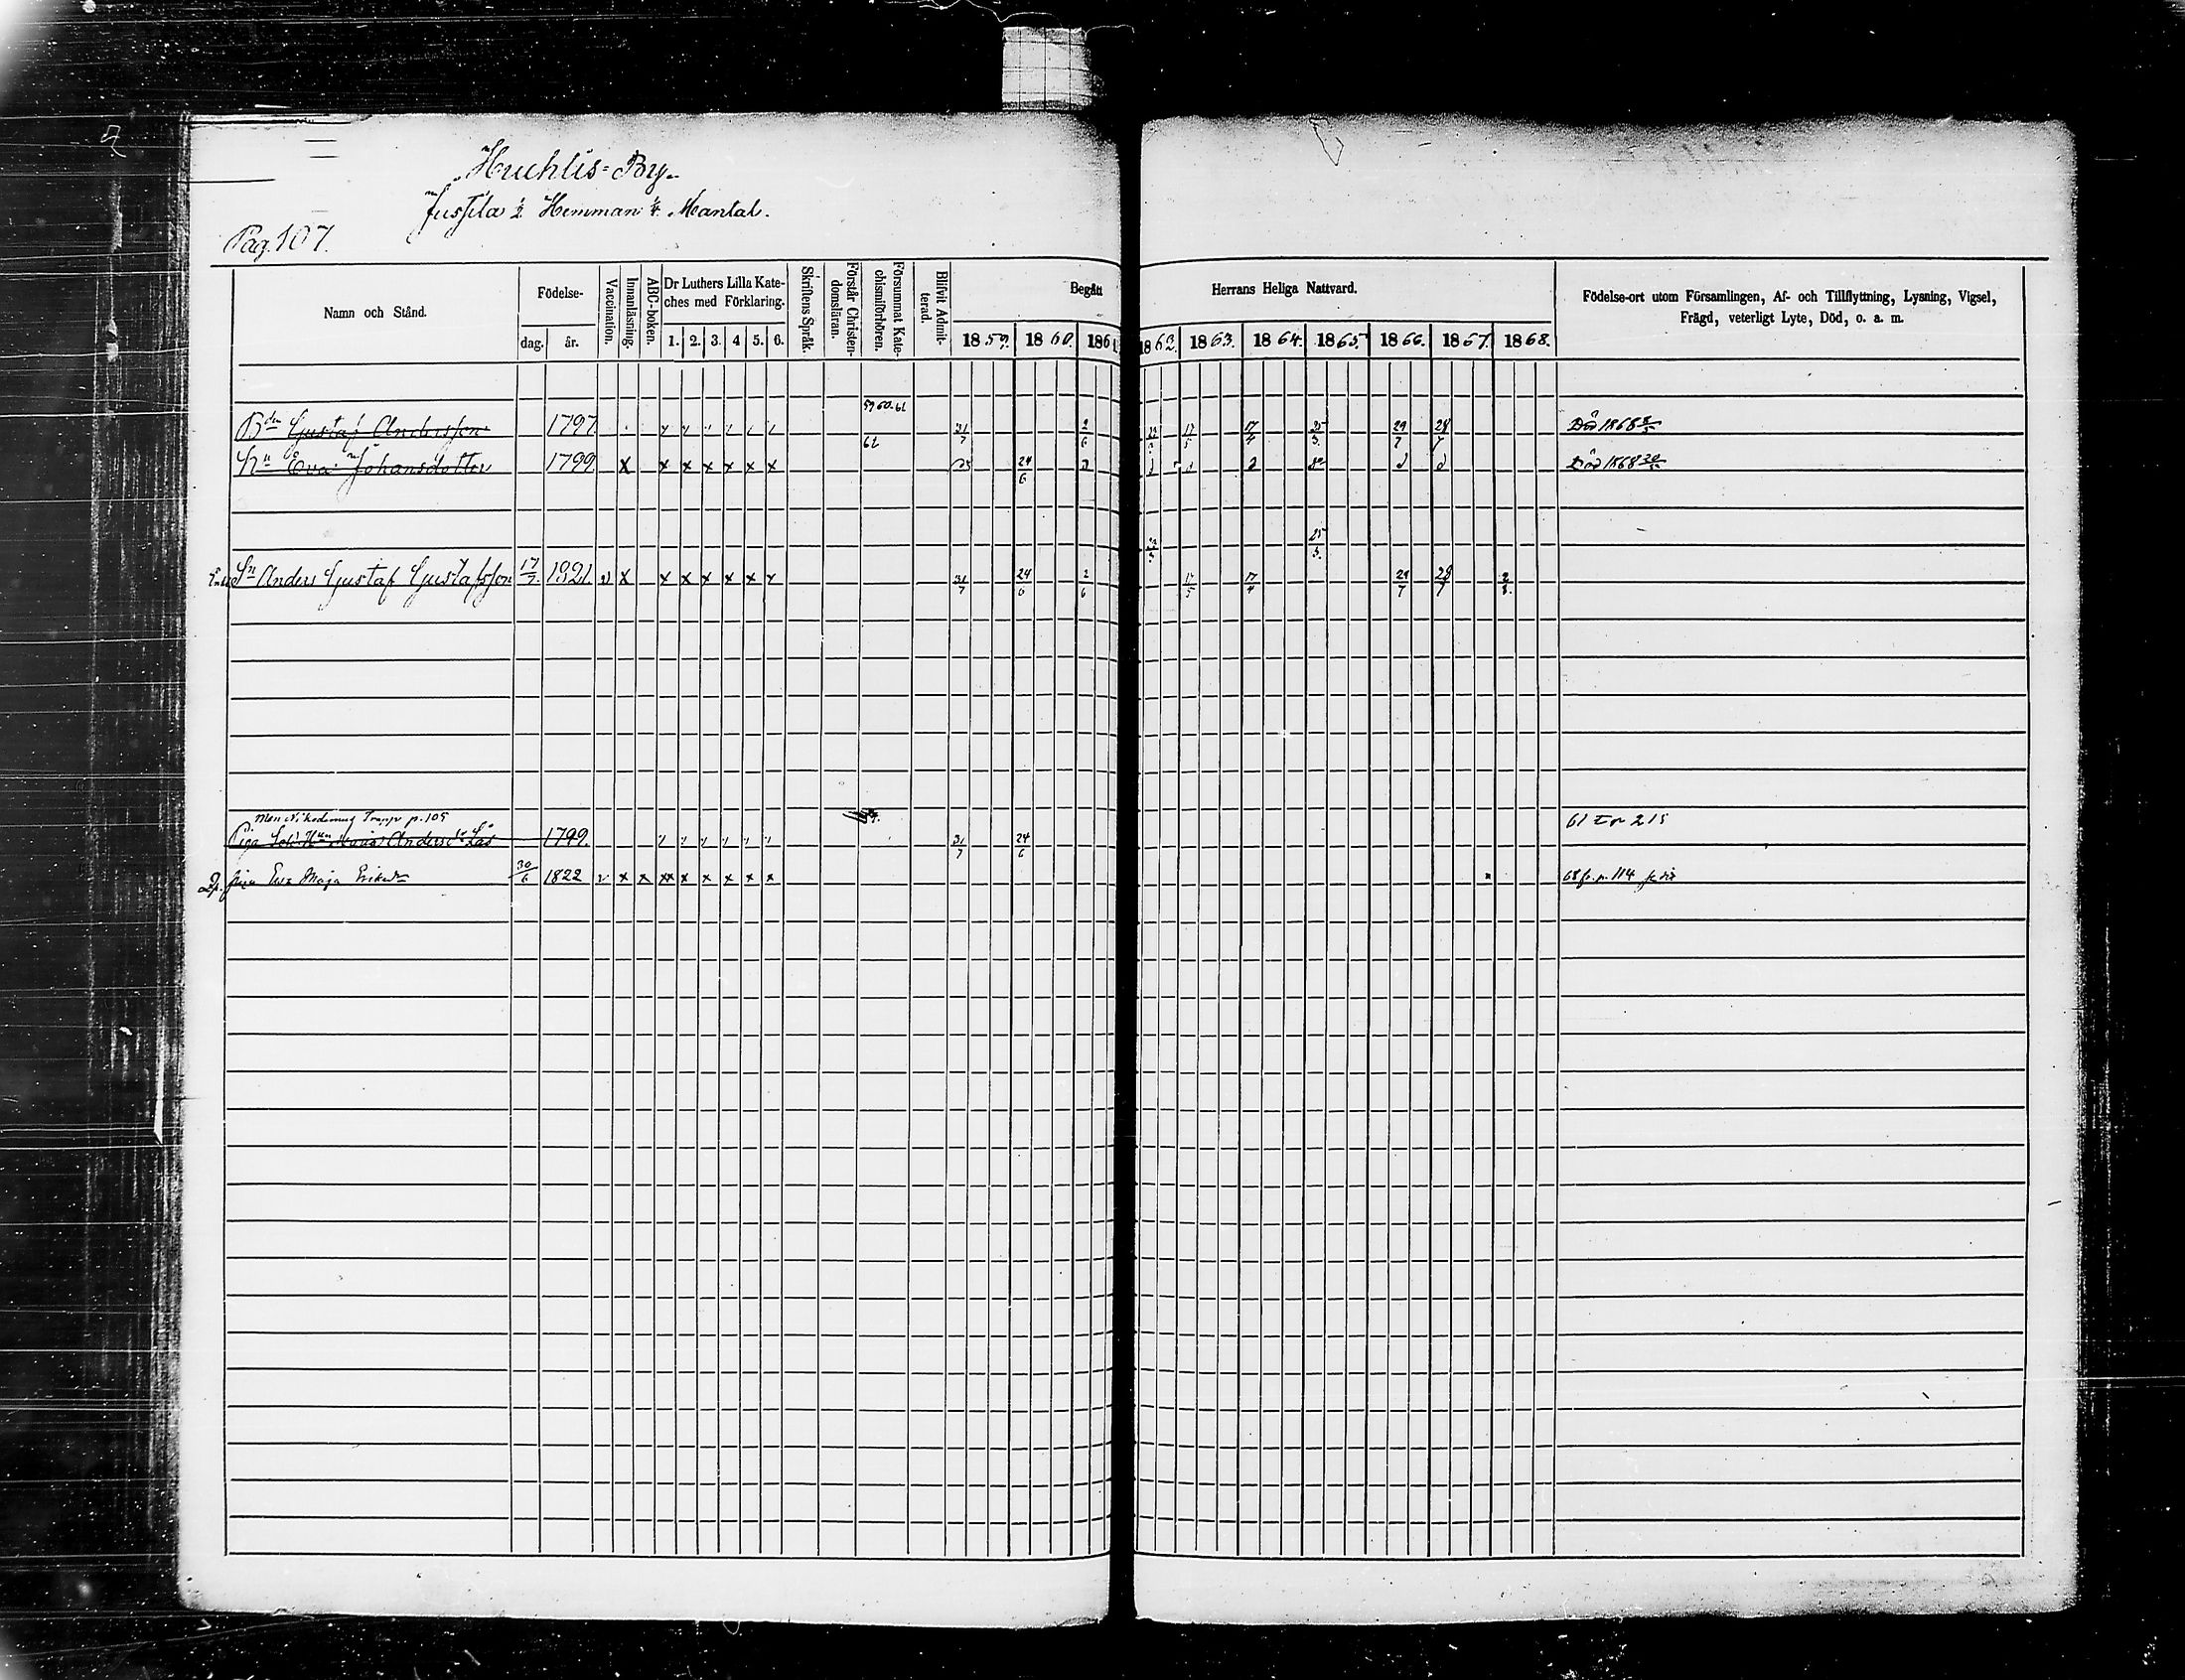 Huhtis-By.
Jussila ½ Hemman ¼ Mantal.
Pag. 107.
Namn och Stånd.
Födelse-
dag. år.
Vaccination.
Innanläsning.
ABC-boken.
Dr Luthers Lilla Kate-
ches med Förklaring.
1. 2. 3. 4 5. 6.
Skriftens Språk.
Förstår Christen-
domsläran.
Försummat Kate-
chismiförhören.
Blifvit Admit-
terad.
Begått
Herrans Heliga Nattvard.
1859. 1860. 1861 1862. 1863. 1864. 1865. 1866. 1867. 1868.
Födelse-ort utom Församlingen, Af- och Tillflyttning, Lysning, Vigsel,
Frägd, veterligt Lyte, Död, o. a. m.
59 60. 61
Bdn Gustaf Andersson 1797 31/7 2/6 17/5 17/4 25/3 29/7 28/7 Död 1868
62
Hu Eva Johansdotter 1799 x x x x x x x 24/6 Död 1868
25/3
Sn Anders Gustaf Gustafsson 17/7 1821 v x x x x x x x 31/7 24/6 2/6 17/5 17/4 29/7 28/7
Nikodemus p. 105
Piga Maria Anders 1799. 31/7 24/6 61 215
Eva Maja Eriksdr 30/6 1822 v x x xx x x x x x 68 fr. p. 114